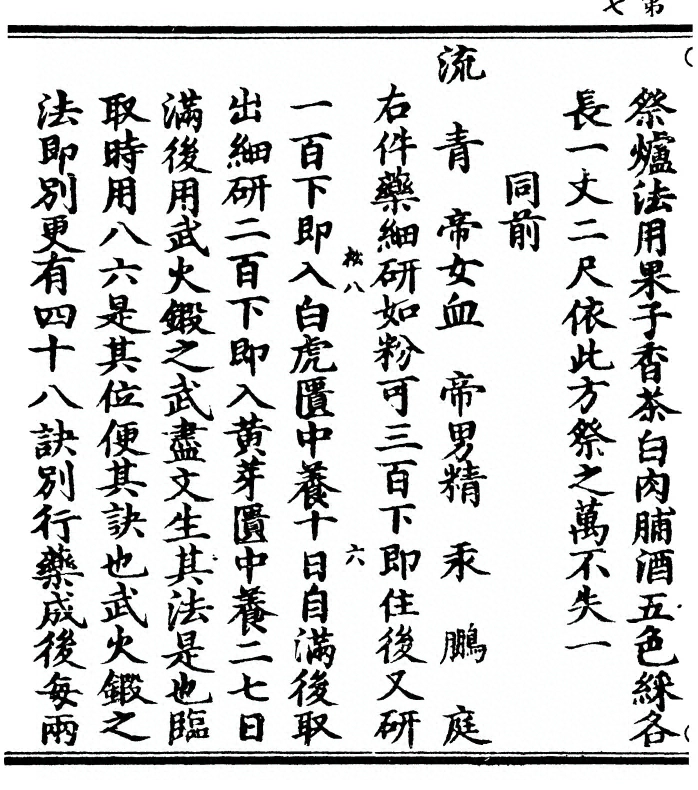 第七
祭爐法用果子香茶白肉脯酒五色綵各
長一丈二尺依此方祭之萬不失一
同前
流 青 帝女血 帝男精 汞 鵬 庭
右件藥細研如粉可三百下即住後又研
松八 六
一百下即入白虎匱中養十日自滿後取
出細研二百下即入黄芽匱中養二七日
滿後用武火鍛之武盡文生其法是也臨
取時用八六是其位便其訣也武火鍛之
法即別更有四十八訣別行藥成後每兩